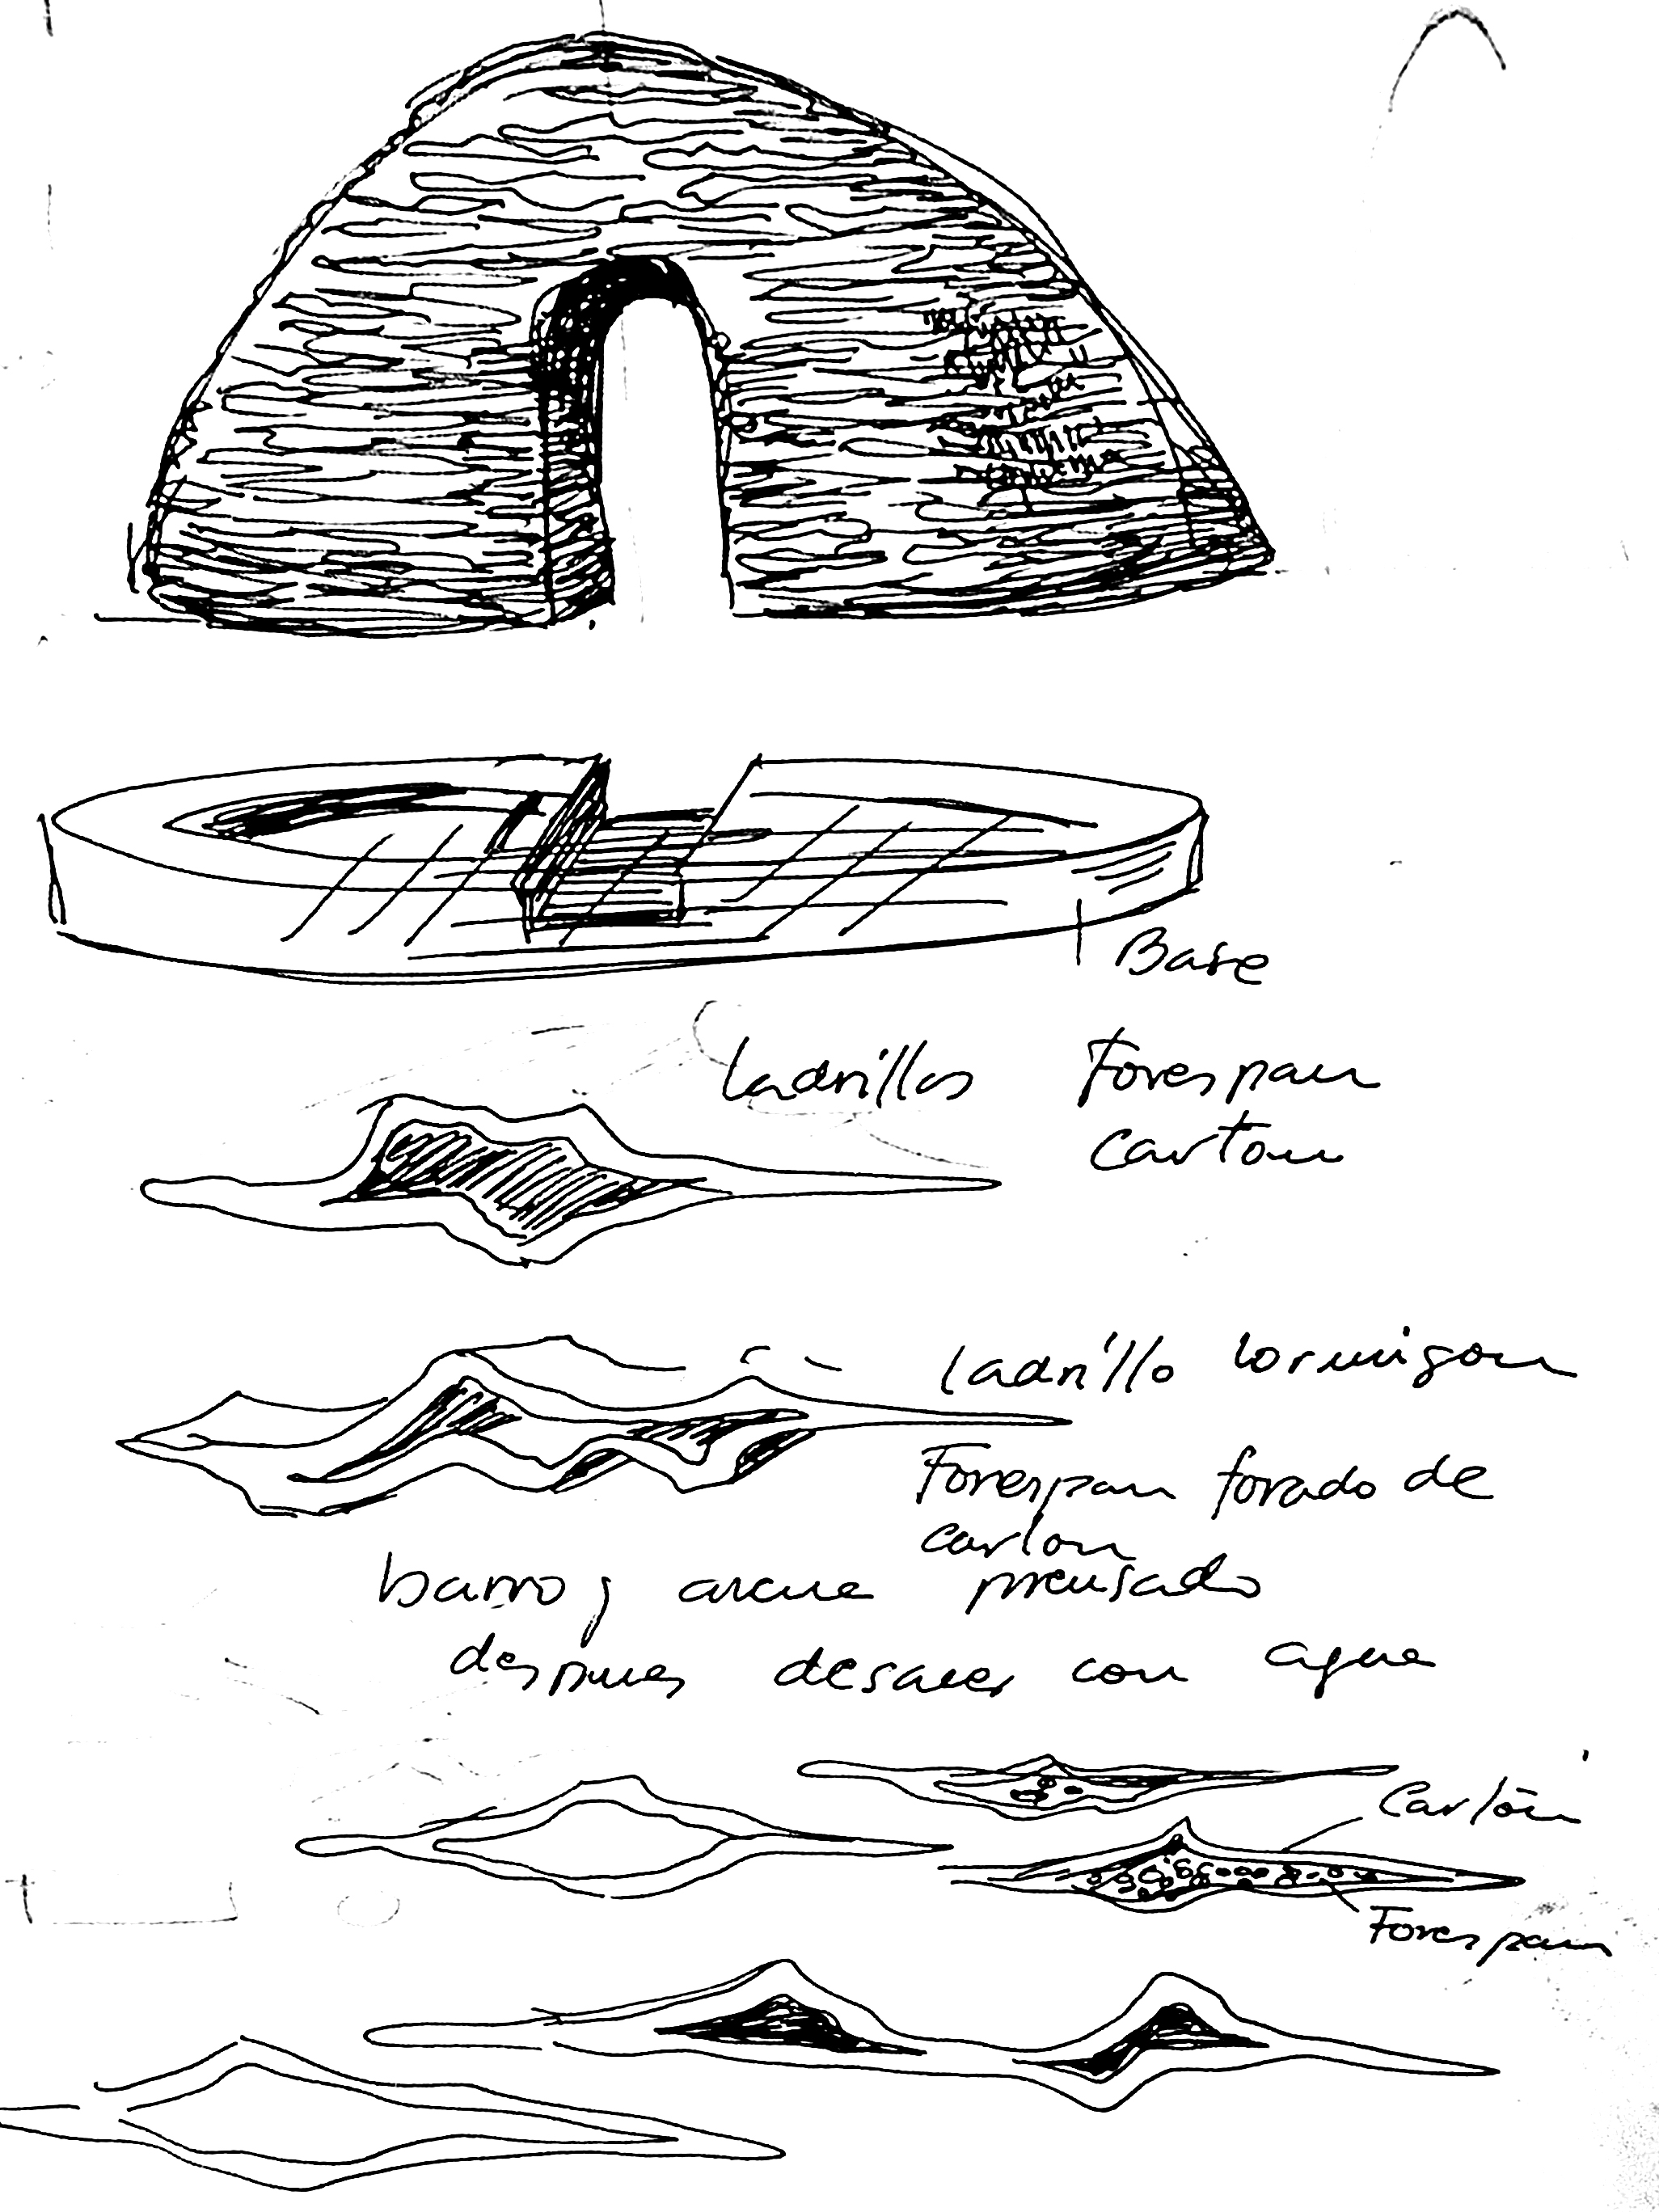 Base
ladrillos Forespan
carton
ladrillo lormigon
Forespan forado de
carton
barro y arena prensado
despues desacer con agua
Carton
Forespan